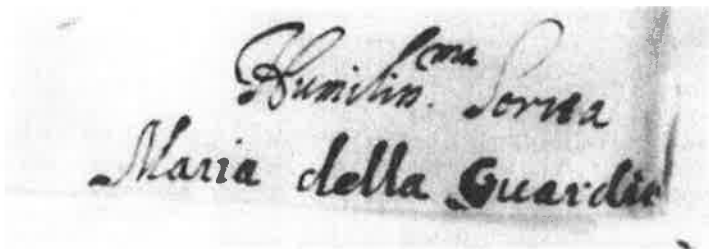 Humilin.ma Serua
Maria della Guardia